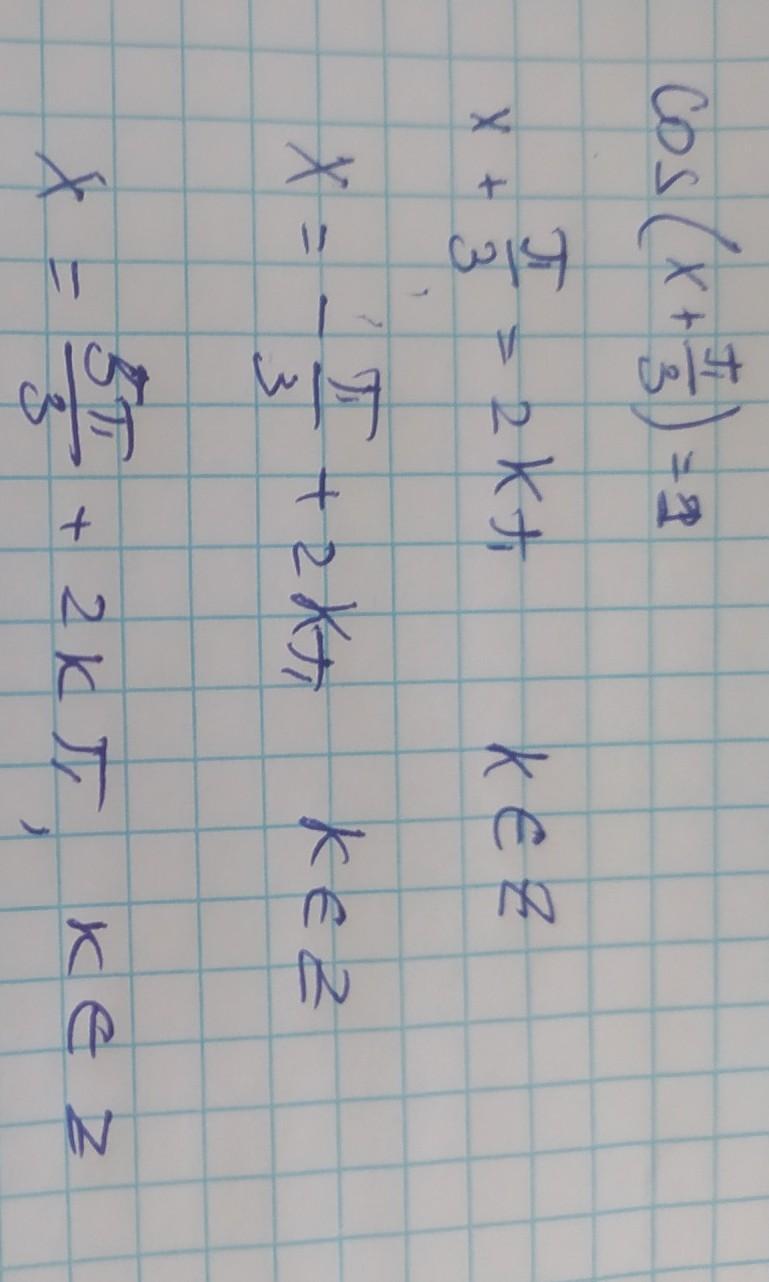 cos(x + π/3) = 1
x + π/3 = 2kπ k ∈ Z
x = -π/3 + 2kπ k ∈ Z
x = 5π/3 + 2kπ, k ∈ Z